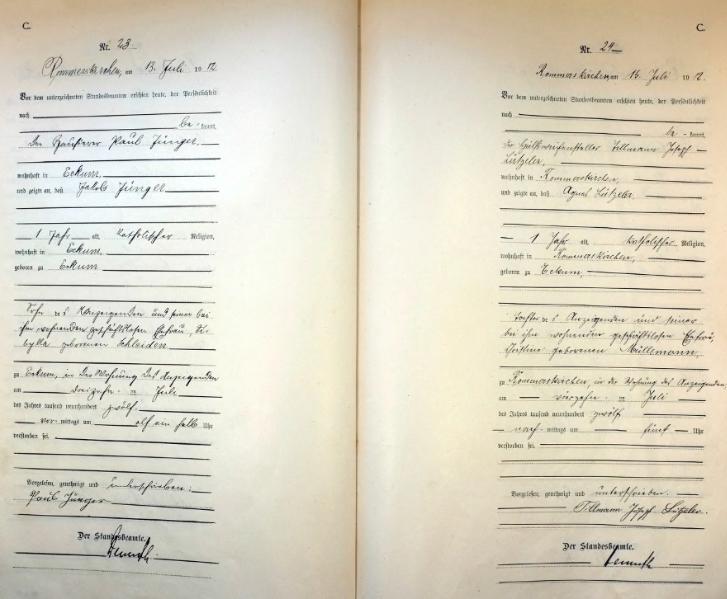 C.
Nr. 23
Rommerskirchen, am 13. Juli 1912
Vor dem unterzeichneten Standesbeamten erschien heute, der Persönlichkeit
nach
be=kannt,
der Paul Jünger,
wohnhaft in Eckum,
und zeigte an, daß Jakob Jünger
1 Jahr alt, katholischer Religion,
wohnhaft in Eckum,
geboren zu Eckum
Sohn des Anzeigenden und seiner bei
ihm wohnenden geschäftslosen Ehefrau, Si-
bylla geborenen Schleiden
zu Eckum, in der Wohnung des Anzeigenden
am dreizehn=n Juli
des Jahres tausend neunhundert zwölf
vor=mittags um elf ein halb Uhr
verstorben sei.
Vorgelesen, genehmigt und unterschrieben:
Paul Jünger
Der Standesbeamte.
C.
Nr. 24
Rommerskirchen, am 16. Juli 1912.
Vor dem unterzeichneten Standesbeamten erschien heute, der Persönlichkeit
nach
be=kannt,
der Tillmann Joseph
Lützeler,
wohnhaft in Rommerskirchen,
und zeigte an, daß Agnes Lützeler,
1 Jahr alt, katholischer Religion,
wohnhaft in Rommerskirchen,
geboren zu Eckum,
Tochter des Anzeigenden und seiner
bei ihm wohnender geschäftslosen Ehefrau,
geborenen Müllemann,
zu Rommerskirchen, in der Wohnung des Anzeigenden,
am vierzehn=n Juli
des Jahres tausend neunhundert zwölf
nach=mittags um fünf Uhr
verstorben sei.
Vorgelesen, genehmigt und unterschrieben.
Tillmann Joseph Lützeler.
Der Standesbeamte.